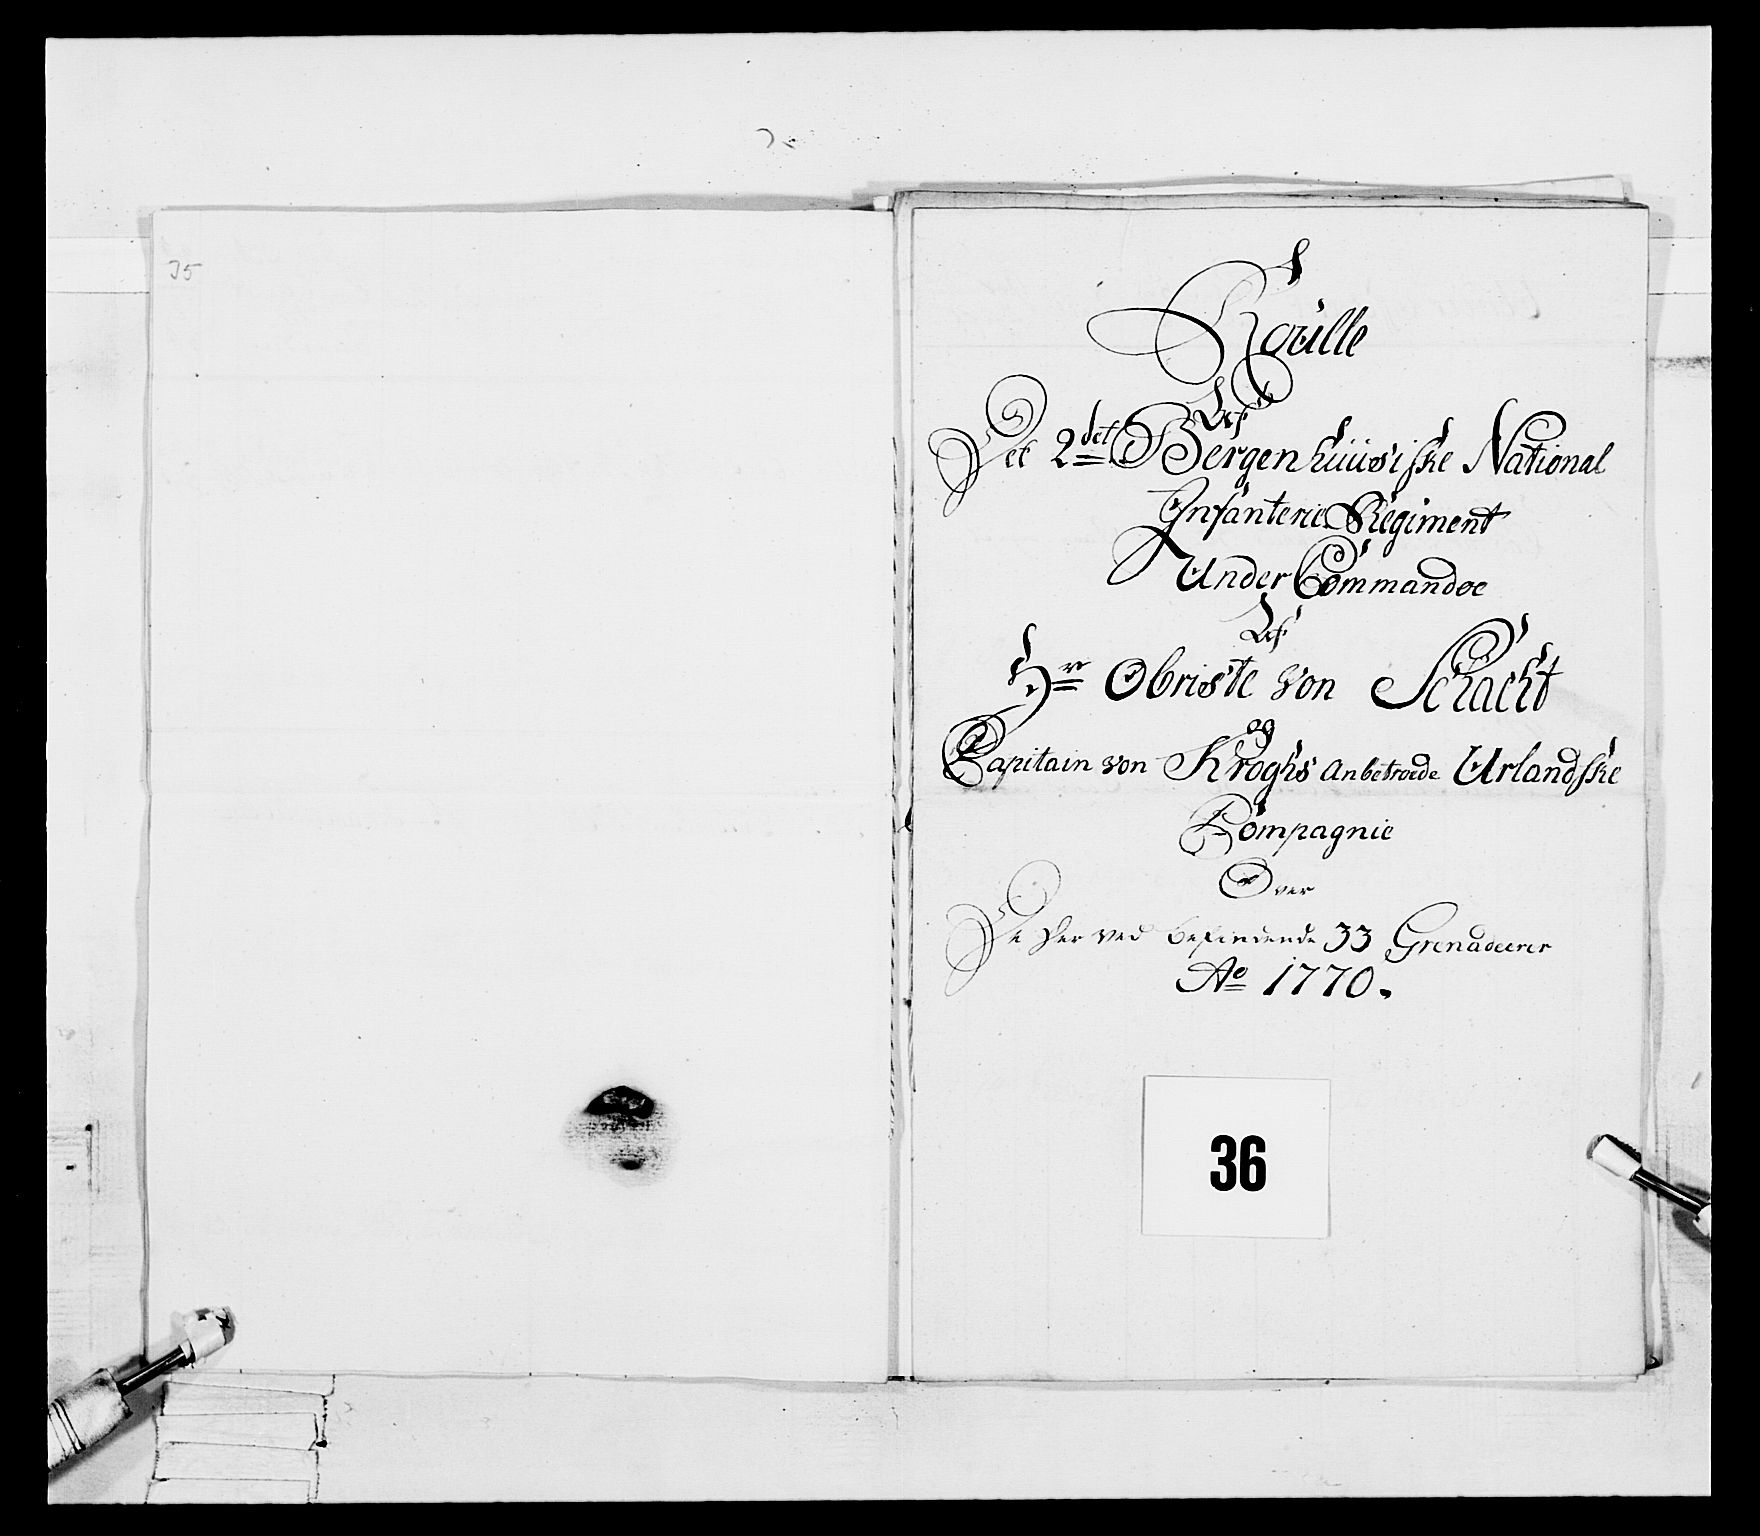 35
Roulle
Det 2det Bergenhuusiske National
Infanterie Regiment
Under Commandoe
Hr Obriste von Schacht
og
Capitain von Kroghs anbetroede Urlandske
Compagnie
Over
De her ved befindende 33 Grenadeerer
Ao 1770.
36